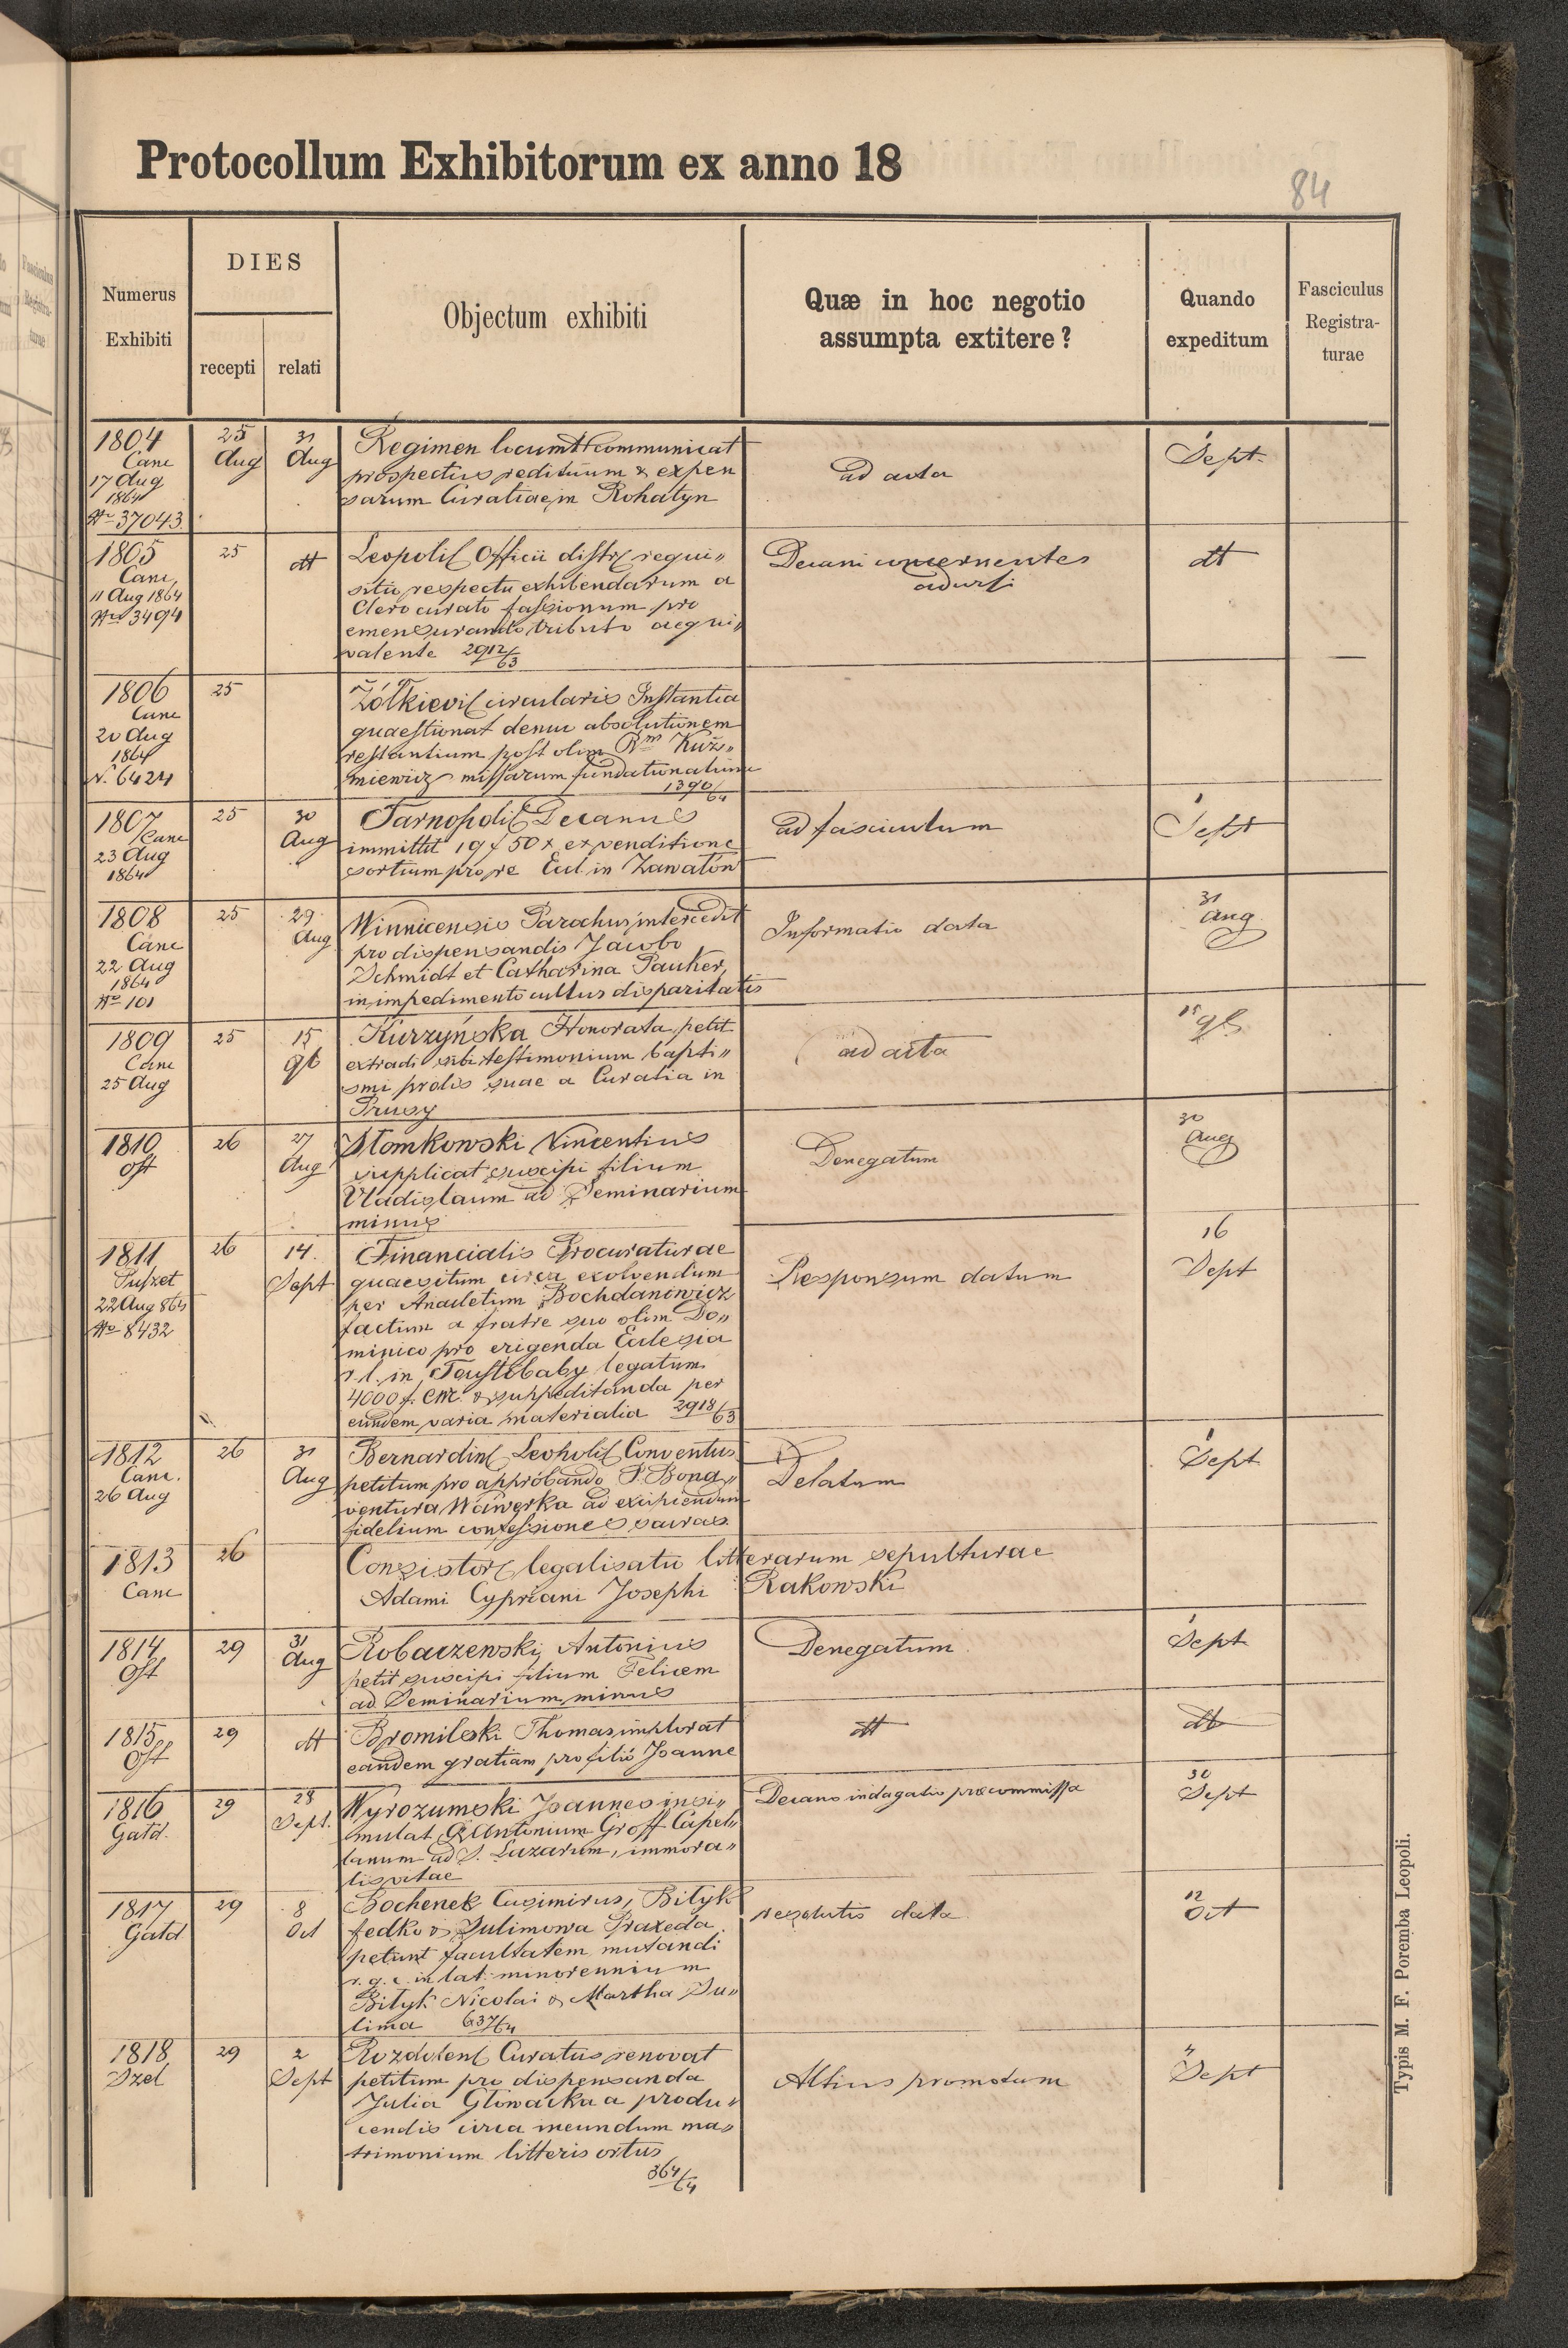 Protocollum Exhibitorum ex anno 18
84
Numerus Exhibiti
DIES
recepti
relati
Objectum exhibiti
Quæ in hoc negotio assumpta extitere?
Quando expeditum
Fasciculus Registra-turae
1804 Canc 17 Aug 1864 No 37043
25 Aug
31 Aug
Regimen locumtt communicat
prospectus redituum & expen
sarum Curatiae in Rohatyn
ad acta
1 Sept
1805 Canc 11 Aug 1864 No 3494
25
dt
Leopol Officii distr requi„
sitio respectu exhibendarum a
Clero curato fassionum pro
emensurando tributo aequi„
valente 2912/63
Decani concernentes
adursi
dt
1806 Canc 20 Aug 1864 N. 6424
25
Żółkievi circularis Instantia
quaestionat denuo absolutionem
restantium post olim Rm Kuź„
miewicz missarum fundationalium
1390/64
1807 Canc 23 Aug 1864
25
30 Aug
Tarnopoli Decanus
immittit 19 f 50 x ex venditione
sortium pro re Eccl. in Zawałów
ad fasciculum
1 Sept
1808 Canc 22 Aug 1864 No 101
25
29 Aug
Winnicensis Parochus intercedit
pro dispensandis Jacobo
Schmidt et Catharina Pauker,
in impedimento cultus disparitatis
Informatio data
31 Aug
1809 Canc 25 Aug
25
15 9b
Kurzyńska Honorata petit
extradi sibi testimonium bapti„
smi prolis suae a Curatia in
Prusy
ad acta
15 9b
1810 Ost
26
27 Aug
Słomkowski Vincentius
supplicat suscipi filium
Vladislaum ad Seminarium
minus
Denegatum
30 Aug
1811 Puszet 22 Aug 864 No 8432
26
14. Sept
Financialis Procuraturae
quaesitum circa exolvendum
per Anacletum Bochdanowicz
factum a fratre suo olim Do„
minico pro erigenda Ecclesia
r. l. in Toustobaby legatum
4000 f. CM. & suppeditanda per
eundem varia materialia 2918/63
Responsum datum
16 Sept
1812 Canc. 26 Aug
26
31 Aug
Bernardin Leopoli Conventus
petitum pro approbando P. Bona„
ventura Wawerka ad excipiendum
fidelium confessiones sacras
Delatum
1 Sept
1813 Canc
26
Consistor legalisatio litterarum sepulturae
Adami Cypriani Josephi Rakowski
1814 Ost
29
31 Aug
Robaczewski Antonius
petit suscipi filium Felicem
ad Seminarium minus
Denegatum
1 Sept
1815 Ost
29
dt
Bromilski Thomas implorat
eandem gratiam pro filio Joanne
dt
dt
1816 Gatd.
29
28 Sept.
Wyrozumski Joannes insi„
mulat Antonium Groff Capel„
lanum ad S. Lazarum, immora„
lis vitae
Decano indagatio praecommissa
30 Sept
1817 Gatd
29
8 Oct
Bochenek Casimirus, Bityk
fedko & Sulimowa Praxeda
petunt facultatem mutandi
r. g. c. in lat. minorennium
Bityk Nicolai & Martha Su„
lima 637/64
resolutio data
12 Oct
1818 Szel
29
2 Sept
Rozdolen Curatus renovat
petitum pro dispensanda
Julia Głowacka a produ„
cendis circa ineundum ma„
trimonium litteris ortus
364/64
Altius promotum
Sept
Typis M. F. Poremba Leopoli.